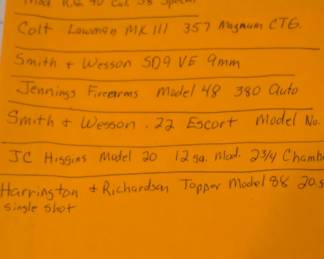 Colt Lawman MK III 357 Magnum CTG.
Smith + Wesson SD9 VE 9mm
Jennings Firearms Model 48 380 Auto
Smith + Wesson .22 Escort Model No.
JC Higgins Model 20 12 ga. Mod. 2 3/4 Chamb
Harrington + Richardson Topper Model 88 20 g
Single Shot